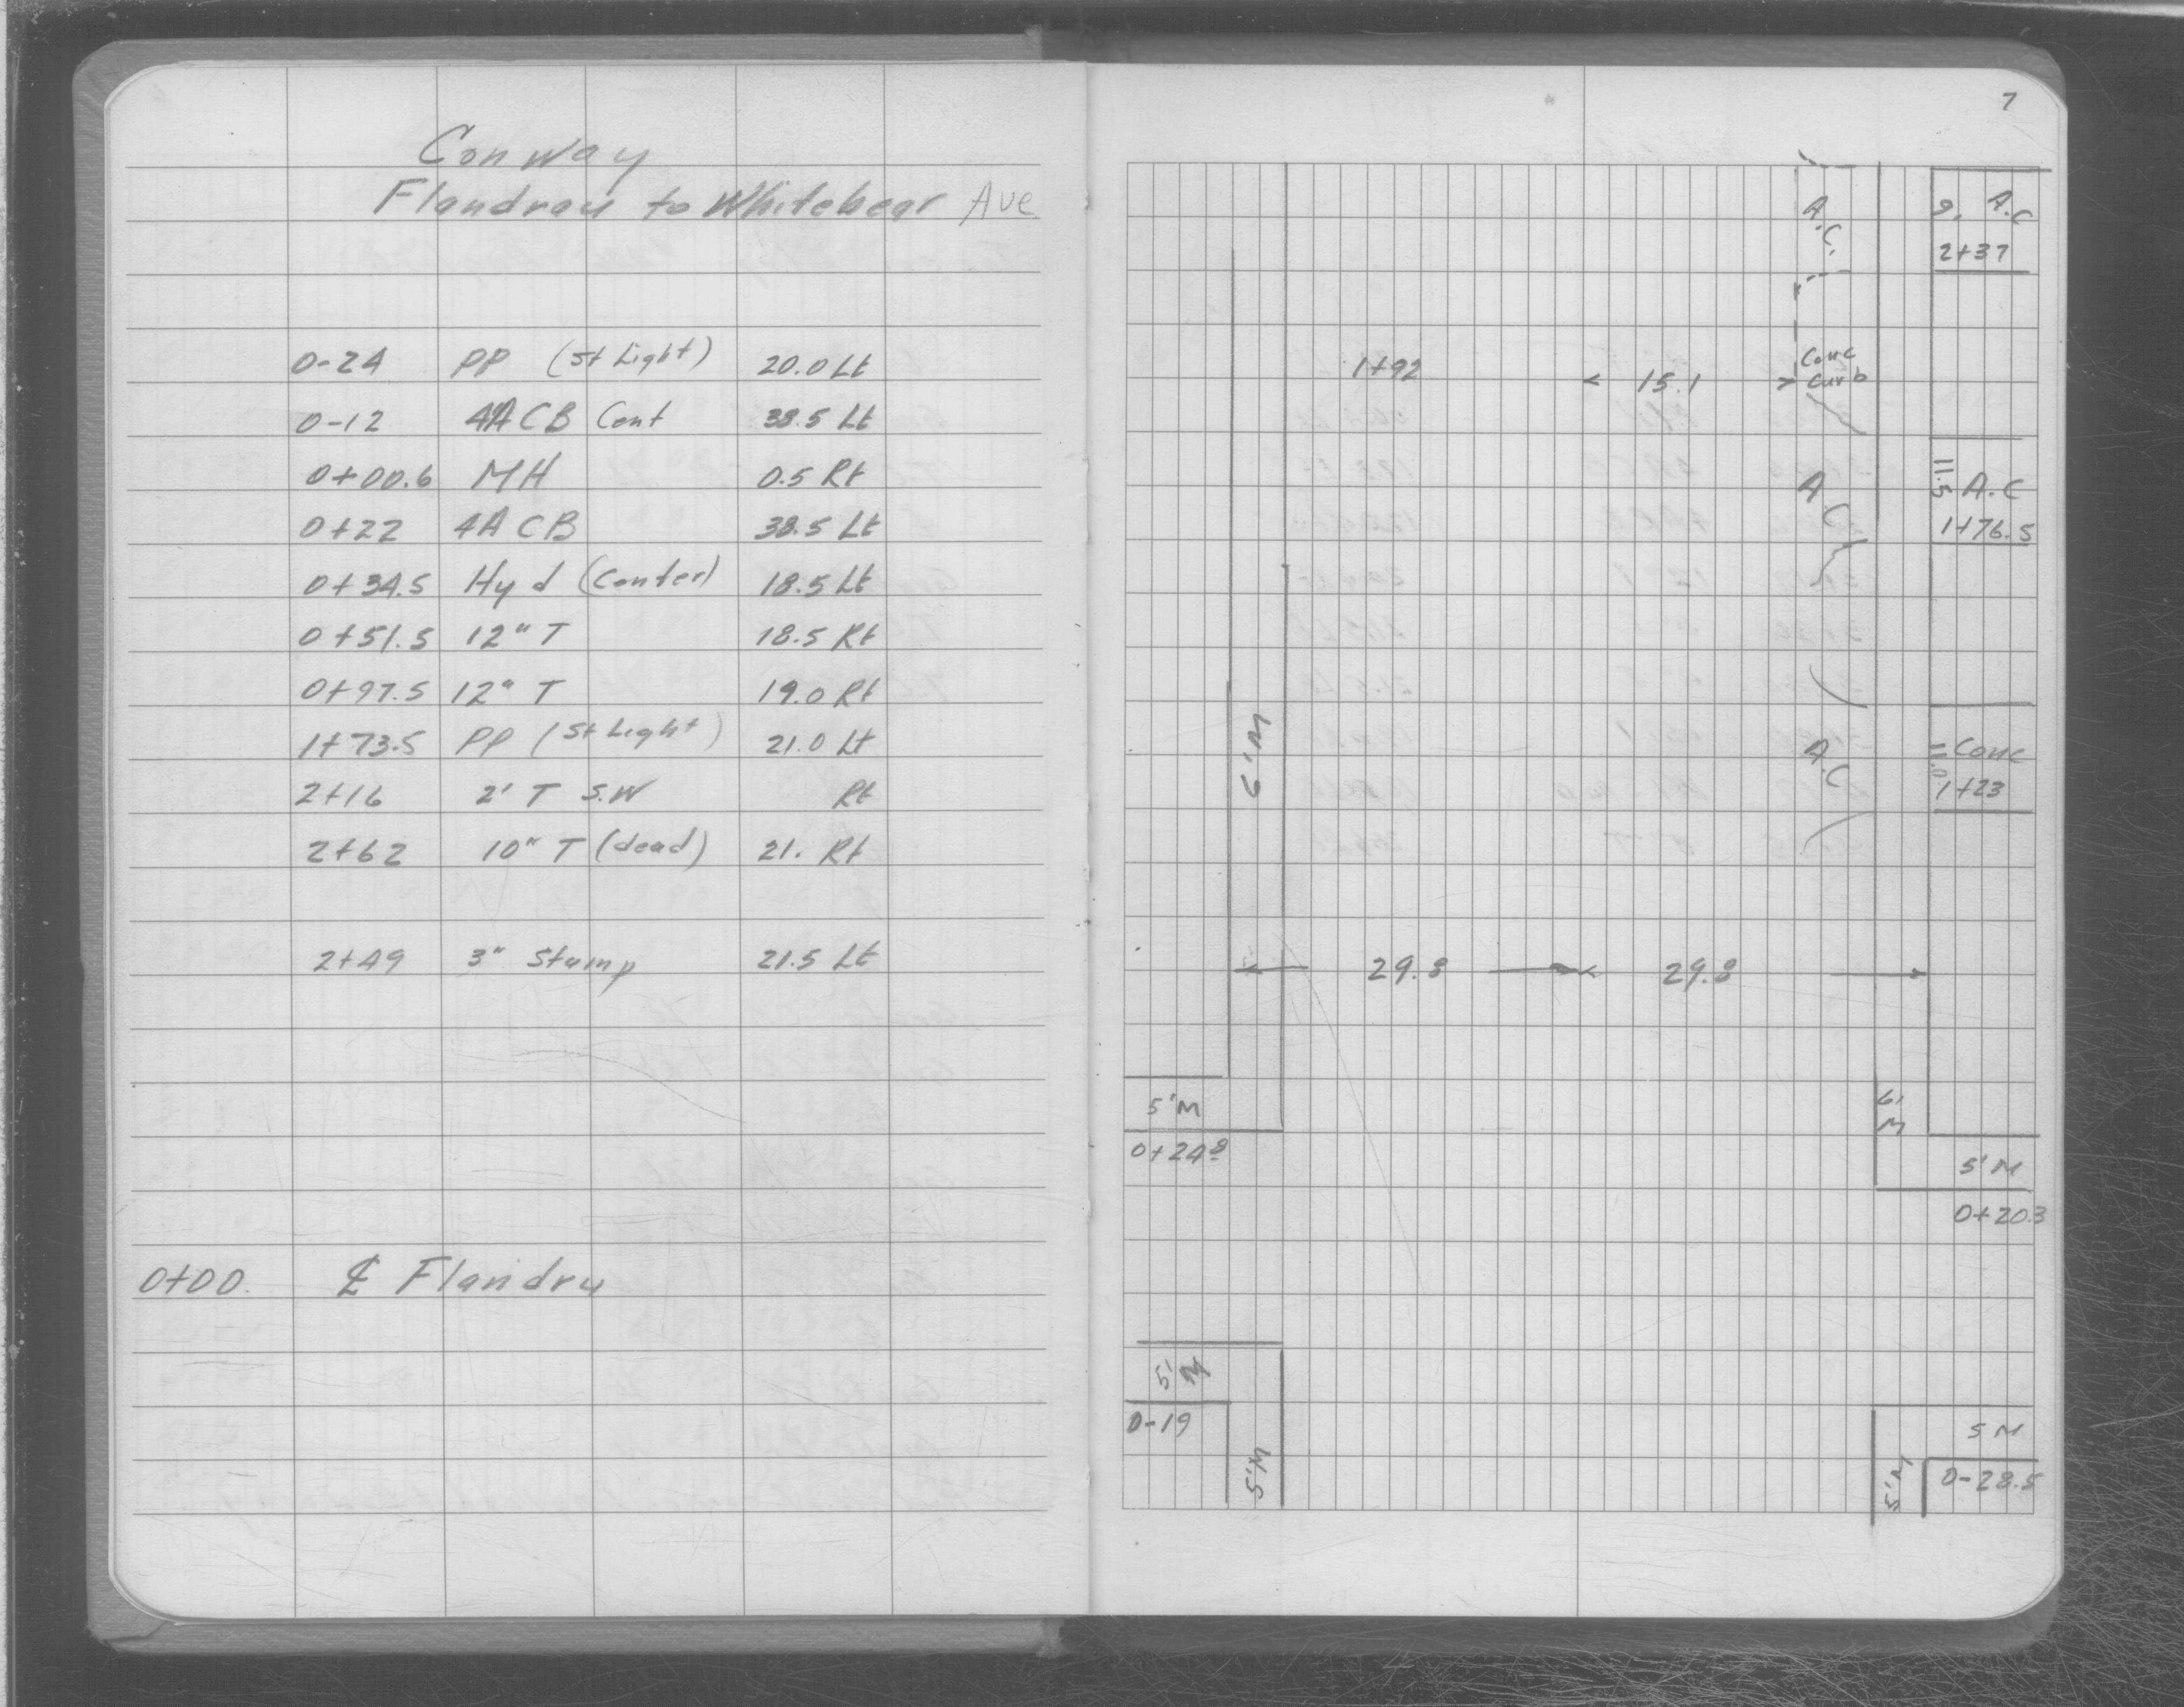 Conway
Flandrau to Whitebear Ave
0-24 PP (St Light) 20.0 Lt
0-12 4A CB Cont 38.5 Lt
0+00.6 MH 0.5 Rt
0+22 4A CB 38.5 Lt
0+34.5 Hyd (Center) 18.5 Lt
0+51.5 12" T 18.5 Rt
0+97.5 12" T 19.0 Rt
1+73.5 PP (St Light) 21.0 Lt
2+16 2' T S.W Rt
2+62 10" T (dead) 21. Rt
2+49 3" Stump 21.5 Lt
0+00. ℄ Flandru
7
A.C. 9. A.C
2+37
1+92 < 15.1 > Conc
Curb
A C 11.5 A.C
1+76.5
6'M A.C 11.0 Conc
1+23
29.8 29.8
5'M 6' M
0+24.8 5'M
0+20.3
5' M
0-19 5 M
5'M 5'M 0-28.5